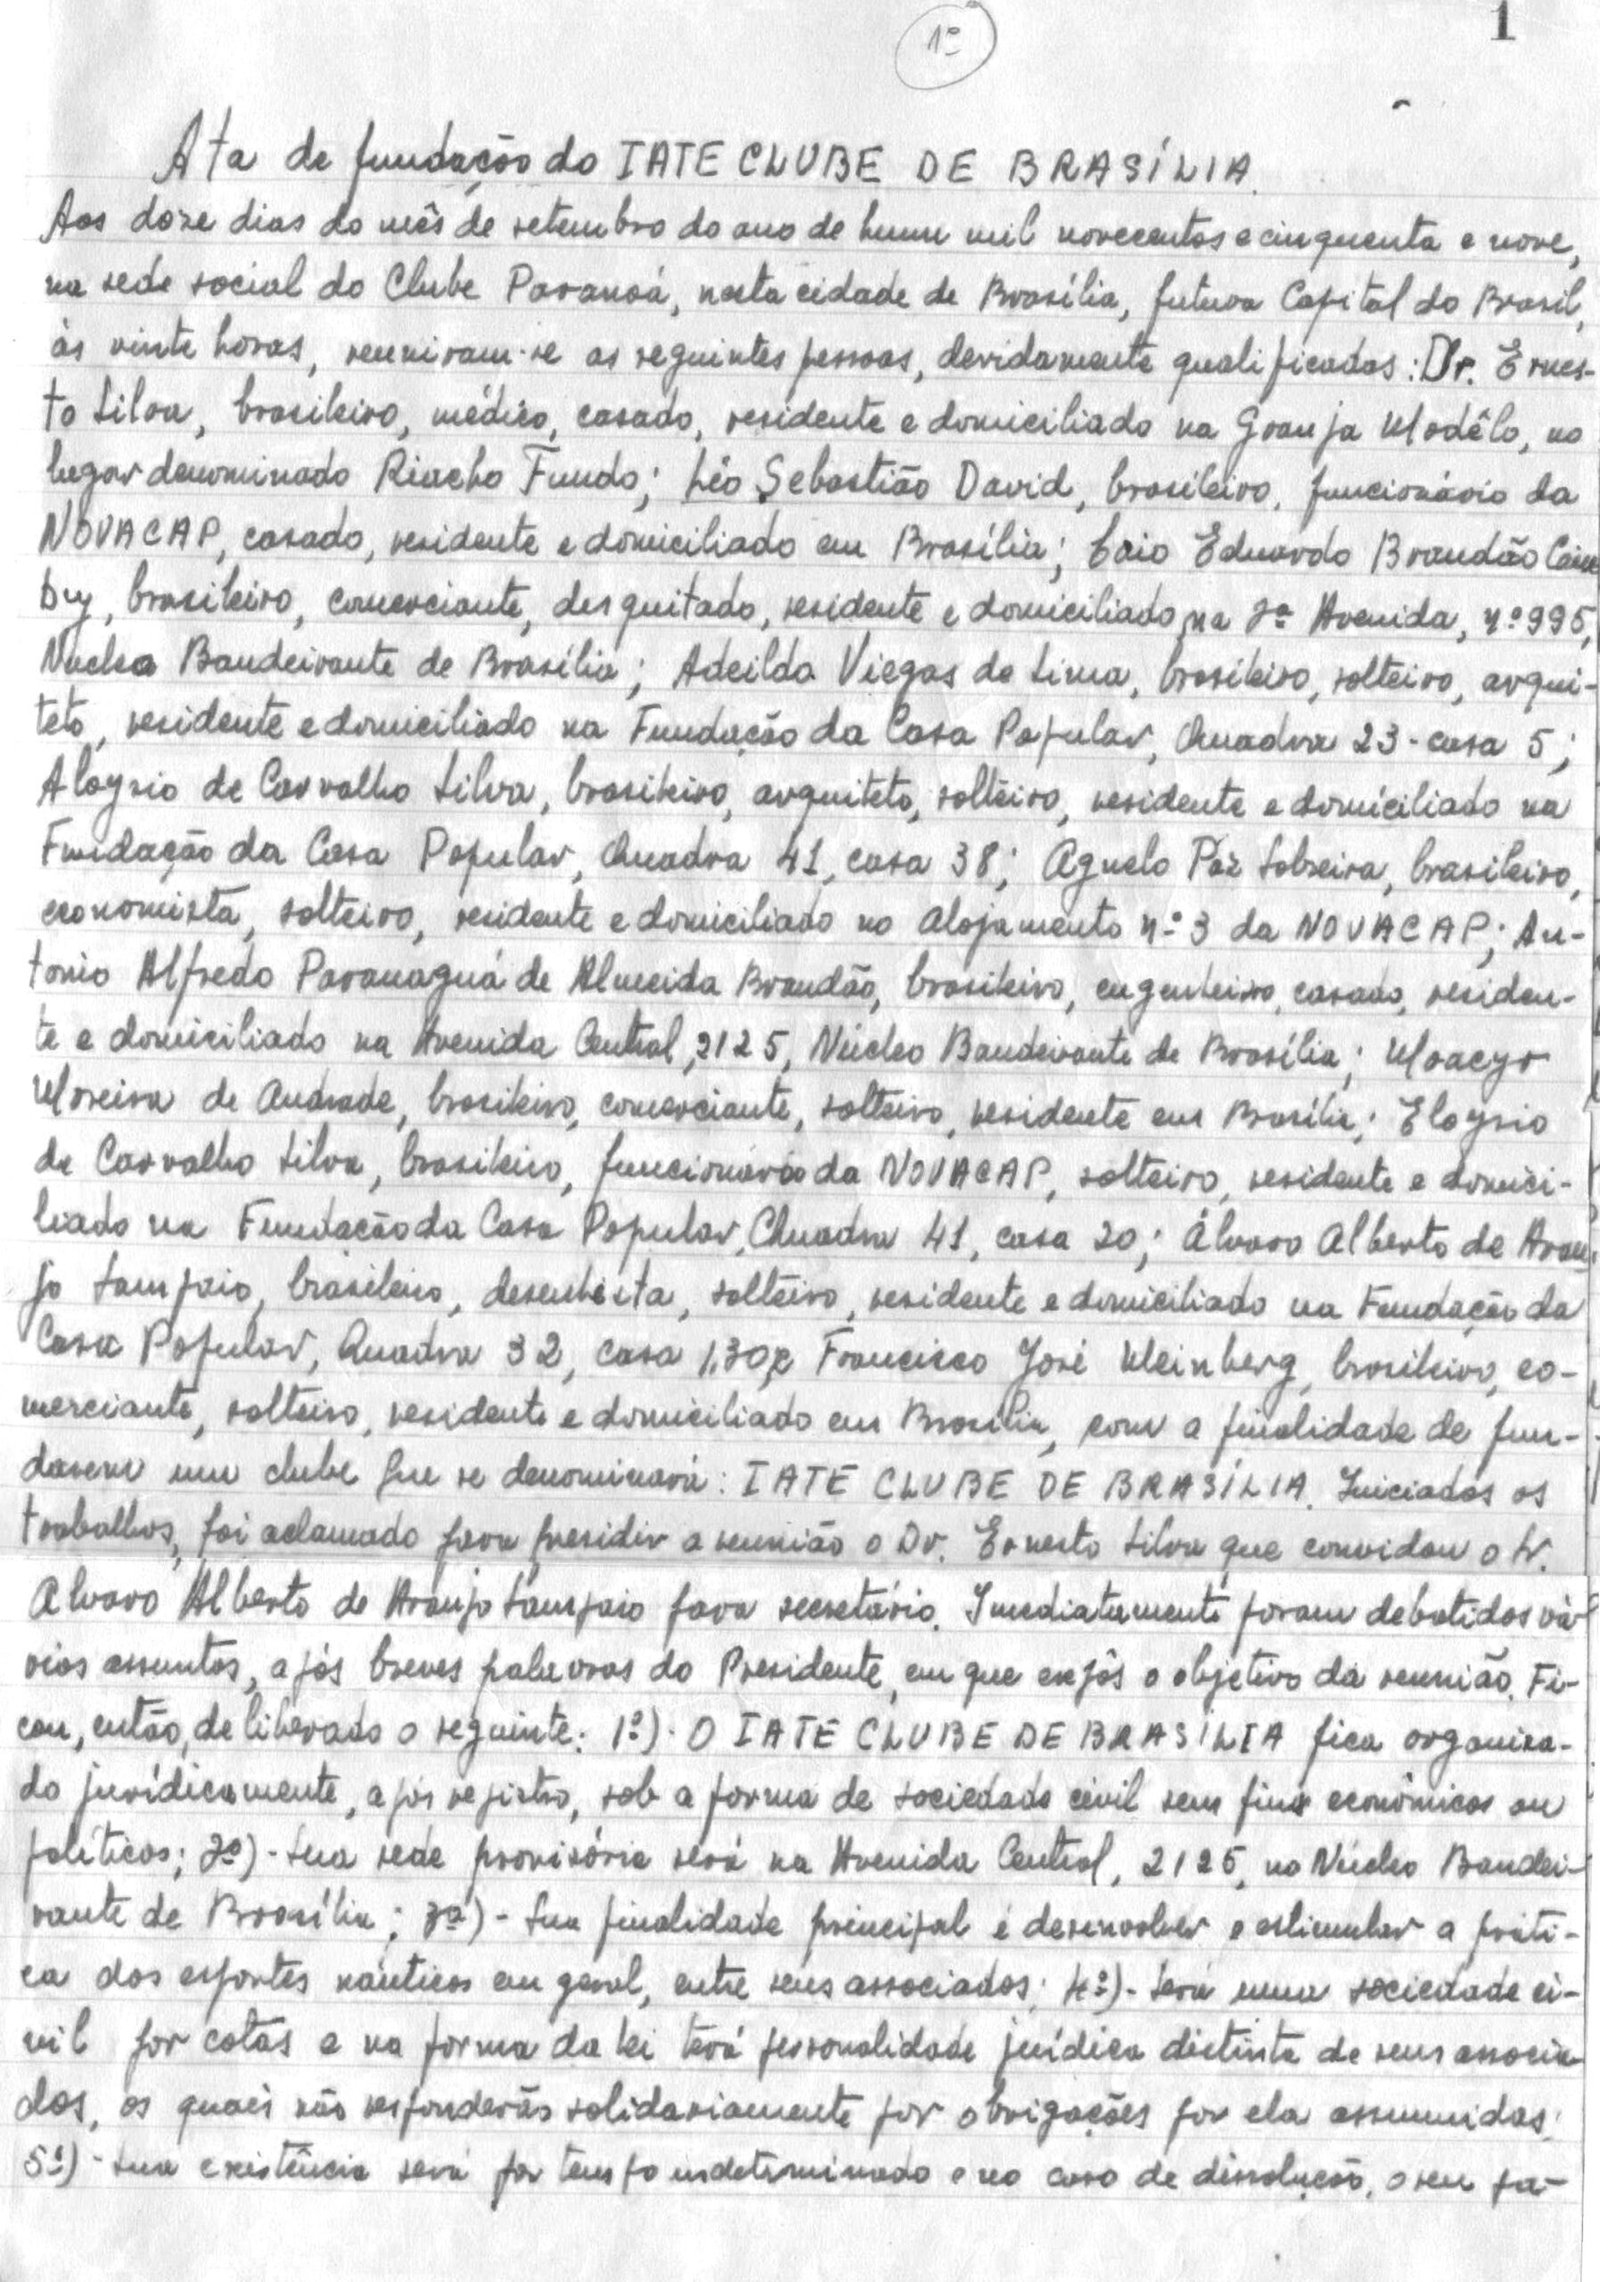 1
1º
Ata de fundação do IATE CLUBE DE BRASÍLIA.
Aos doze dias do mês de setembro do ano de hum mil novecentos e cinquenta e nove,
na sede social do Clube Paranoá, nesta cidade de Brasília, futura Capital do Brasil,
às vinte horas, reuniram-se as seguintes pessoas, devidamente qualificadas: Dr. Ernes-
to Silva, brasileiro, médico, casado, residente e domiciliado na Granja Modêlo, no
lugar denominado Riacho Fundo; Léo Sebastião David, brasileiro, funcionário da
NOVACAP, casado, residente e domiciliado em Brasília; Caio Eduardo Brandão Caiu
by, brasileiro, comerciante, desquitado, residente e domiciliado na 2ª Avenida, nº 995,
Nucleo Bandeirante de Brasília; Adeildo Viegas de Lima, brasileiro, solteiro, arqui-
teto, residente e domiciliado na Fundação da Casa Popular, Quadra 23 - casa 5;
Aloysio de Carvalho Silva, brasileiro, arquiteto, solteiro, residente e domiciliado na
Fundação da Casa Popular, Quadra 41, casa 38; Agnelo Paz Sobreira, brasileiro,
economista, solteiro, residente e domiciliado no Alojamento nº 3 da NOVACAP; An-
tonio Alfredo Paranaguá de Almeida Brandão, brasileiro, engenheiro, casado, residen-
te e domiciliado na Avenida Central, 2125, Núcleo Bandeirante de Brasília; Moacyr
Moreira de Andrade, brasileiro, comerciante, solteiro, residente em Brasília; Eloysio
de Carvalho Silva, brasileiro, funcionário da NOVACAP, solteiro, residente e domici-
liado na Fundação da Casa Popular, Quadra 41, casa 20; Álvaro Alberto de Arau-
jo Sampaio, brasileiro, desenhista, solteiro, residente e domiciliado na Fundação da
Casa Popular, Quadra 32, casa 1,30, e Francisco José Kleinberg, brasileiro, co-
merciante, solteiro, residente e domiciliado em Brasília, com a finalidade de fun-
darem um clube que se denominará: IATE CLUBE DE BRASÍLIA. Iniciados os
trabalhos, foi aclamado para presidir a reunião o Dr. Ernesto Silva que convidou o Sr.
Alvaro Alberto de Araujo Sampaio para secretário. Imediatamente foram debatidos vá-
rios assuntos, após breves palavras do Presidente, em que expôs o objetivo da reunião. Fi-
cou, então, deliberado o seguinte: 1º) - O IATE CLUBE DE BRASÍLIA fica organiza-
do jurídicamente, após registro, sob a forma de sociedade civil sem fins econômicos ou
políticos; 2º) - Sua sede provisória será na Avenida Central, 2125, no Núcleo Bandei-
rante de Brasília; 3º) - Sua finalidade principal é desenvolver e estimular a práti-
ca dos esportes náuticos em geral, entre seus associados; 4º) - Será uma sociedade ci-
vil por cotas e na forma da lei terá personalidade jurídica distinta de seus associa-
dos, os quais não responderão solidariamente por obrigações por ela assumidas;
5º) - Sua existência será por tempo indeterminado e no caso de dissolução, o seu pa-